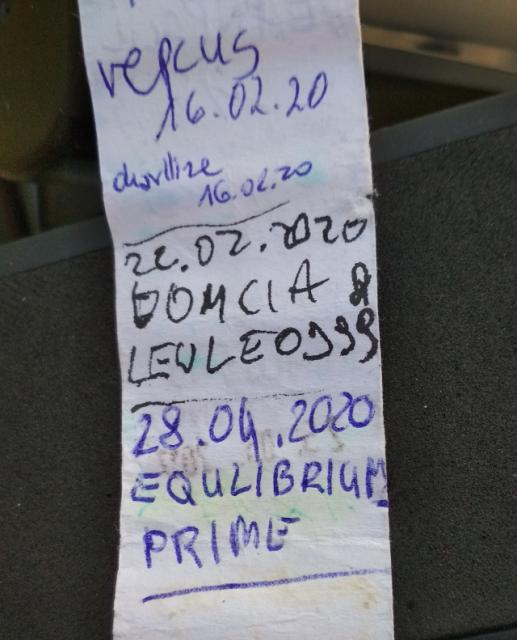 vercus
16.02.20
16.02.20
22.02.2020
DOMCIA &
LEULE0999
28.04.2020
EQULIBRIUM
PRIME